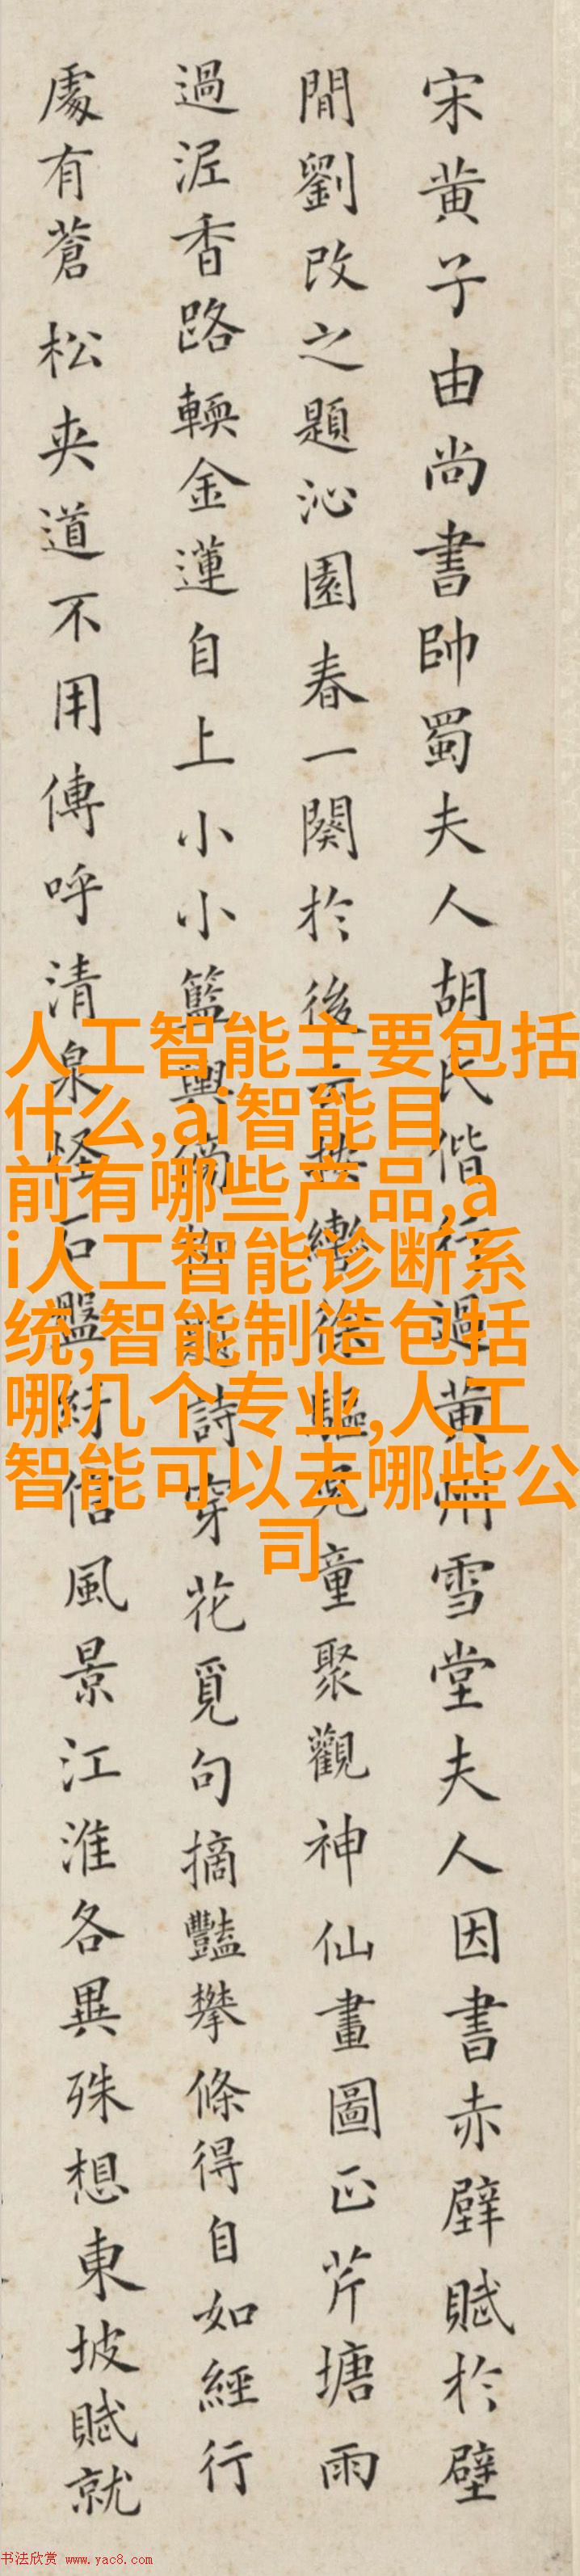 宋黄子由尚書帥蜀夫人胡氏偕行過黄州雪堂夫人因書赤壁賦於壁
間劉改之題沁園春一闋於後云按轡徐驅兒童聚觀神仙畫圖正芹塘雨
過泥香路輭金蓮自上小小籃輿傍柳題詩穿花覓句摘豔攀條得自如經行
處有蒼松夾道不用傳呼清泉怪石盤紆信風景江淮各異殊想東坡賦就
人工智能主要包括
什么,ai智能目
前有哪些产品,a
i人工智能诊断系
统,智能制造包括
哪几个专业,人工
智能可以去哪些公
司
书法欣赏 www.yac8.com